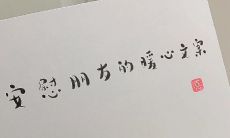 安慰朋友的暖心文案